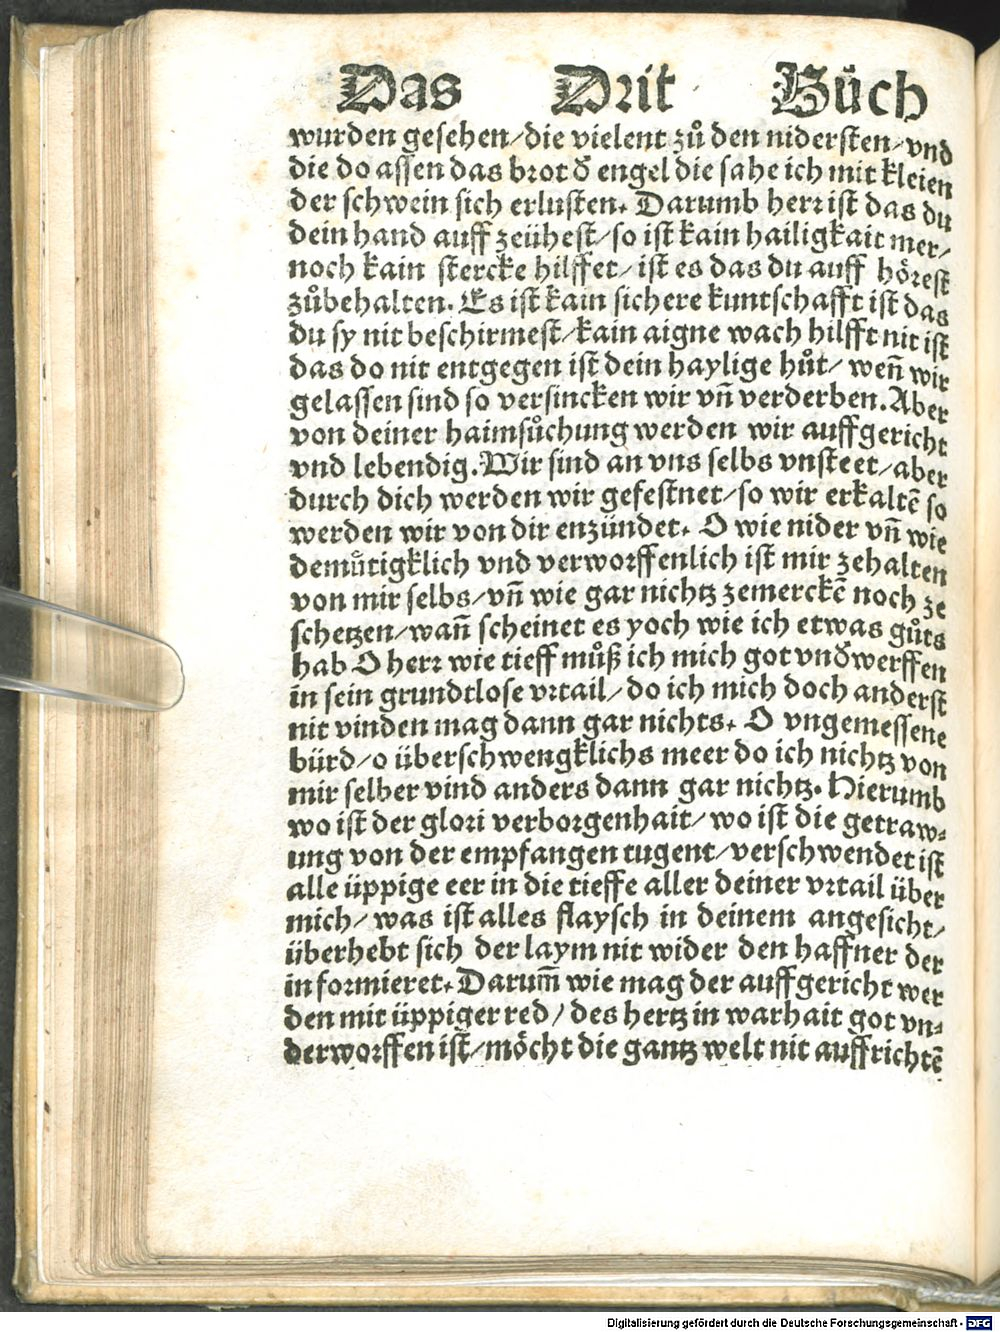 Das Drit Bůch
wurden gesehen/die vielent zů den nidersten/vnd
die do assen das brot d̕ engel die sahe ich mit kleien
der schwein sich erlusten. Darumb herr ist das du
dein hand auff zeühest/so ist kain hailigkait mer/
noch kain stercke hilffet/ist es das du auff hörest
zůbehalten. Es ist kain sichere kuntschafft ist das
du sy nit beschirmest/kain aigne wach hilfft nit ist
das do nit entgegen ist dein haylige hůt/wen̄ wir
gelassen sind so versincken wir vn̄ verderben. Aber
von deiner haimsůchung werden wir auffgericht
vnd lebendig. Wir sind an vns selbs vnsteet/aber
durch dich werden wir gefestnet/so wir erkaltē so
werden wir von dir enzündet. O wie nider vn̄ wie
demůtigklich vnd verworffenlich ist mir zehalten
von mir selbs/vn̄ wie gar nichtz zemerckē noch ze
schetzen/wan̄ scheinet es yoch wie ich etwas gůts
hab O herr wie tieff můß ich mich got vnd̕werffen
in sein grundtlose vrtail/do ich mich doch anderst
nit vinden mag dann gar nichts. O vngemessene
bürd/o überschwengklichs meer do ich nichtz von
mir selber vind anders dann gar nichtz. Hierumb
wo ist der glori verborgenhait/wo ist die getraw-
ung von der empfangen tugent/verschwendet ist
alle üppige eer in die tieffe aller deiner vrtail über
mich/was ist alles flaysch in deinem angesicht/
überhebt sich der laym nit wider den haffner der
in formieret. Darum̄ wie mag der auffgericht wer
den mit üppiger red/des hertz in warhait got vn-
derworffen ist/möcht die gantz welt nit auffrichtē
Digitalisierung gefördert durch die Deutsche Forschungsgemeinschaft - DFG